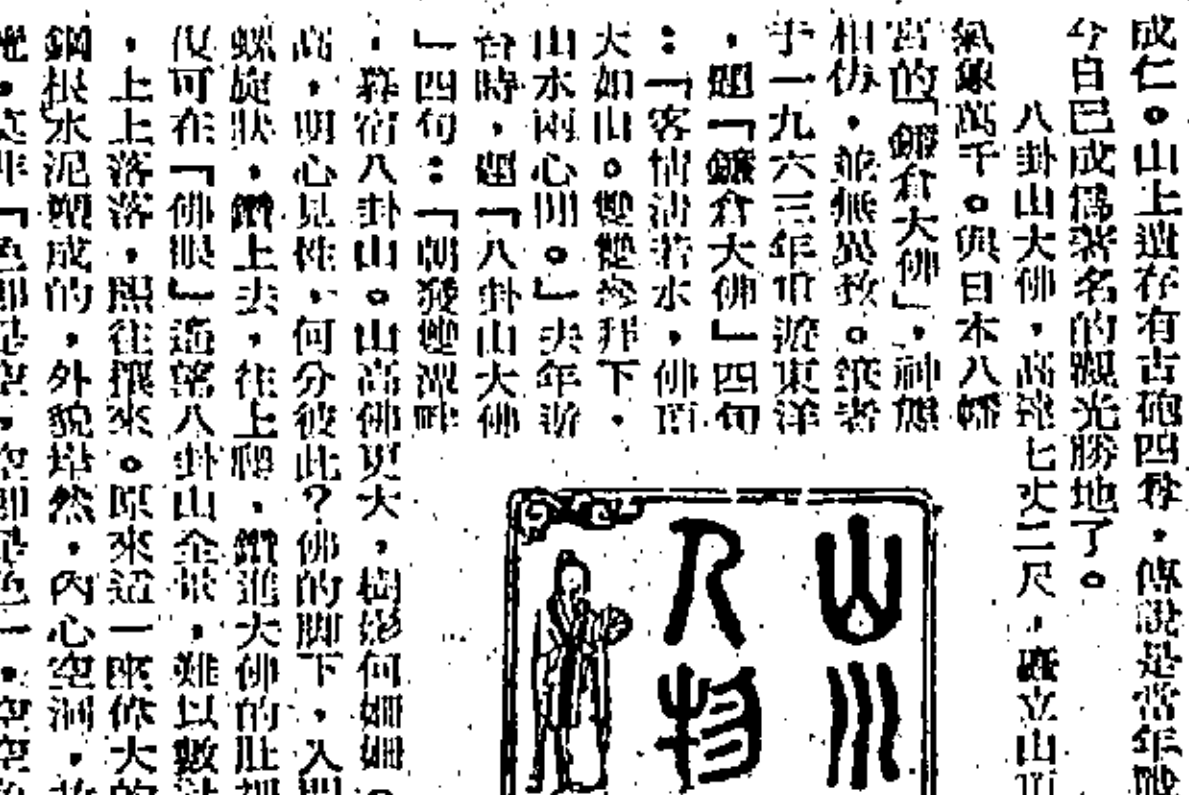 成仁。山上遺存有古砲四尊，傳說是當年戰
今自已成為著名的觀光勝地了。
八卦山大佛，高達七丈二尺，矗立山頂
氣象萬千。與日本八幡
宮的「鎌倉大佛」，神態
相仿，並無異致。筆者
于一九六三年重遊東洋
，題「鎌倉大佛」四句
：「客情清若水，佛頂
大如山。雙雙參拜下，
山水兩心閒。」去年游
台時，題「八卦山大佛
」四句：「朝發鹿潭畔
，暮宿八卦山。山高佛更大，樹影何姍姍。
高，明心見性，何分彼此？佛的脚下，入門
螺旋狀，鑽上去，往上爬，鑽進大佛的肚裡
復可在「佛眼」遙望八卦山全景，難以數計
，上上落落，熙往攘來。原來這一座偉大的
鋼根水泥塑成的，外貌岸然，內心空洞，若
，莫非「色即是空，空即是色」，空空
山川
人物